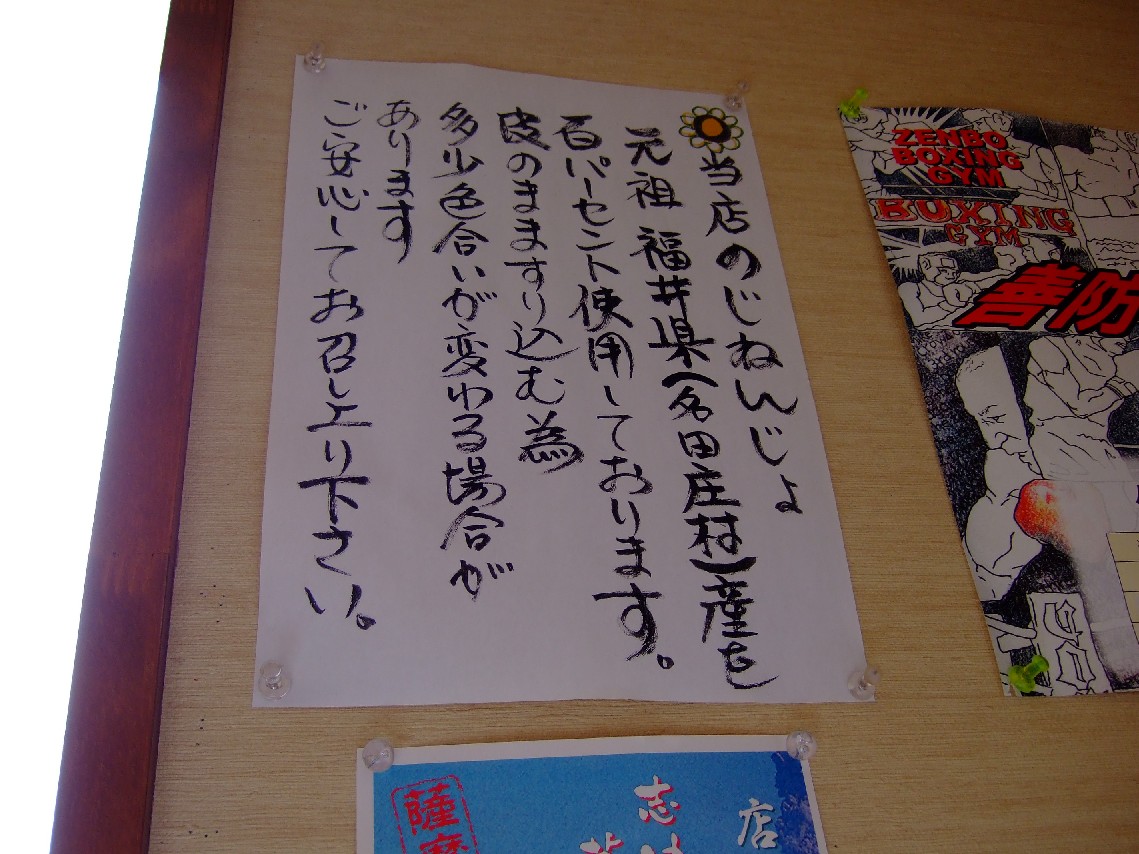 当店のじねんじょ
元祖 福井県(名田庄村)産を
百パーセント使用しております。
皮のまますり込む為
多少色合いが変わる場合が
あります
ご安心してお召し上り下さい。
ZENBO
BOXING
GYM
BOXING
GYM
善防
店
志
薩摩